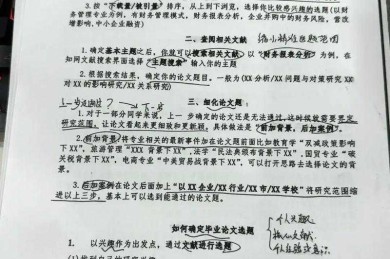 3. 按"下载量/被引量"排序，从上到下浏览，选择你比较感兴趣的选题(以财
务管理专业为例，有财务管理模式，财务报表分析，企业并购中的财务风险，营改
增影响，中小企业融资)
二、查阅相关文献 缩小精准在题范围
1. 确定基本主题之后，你就可以搜索相关文献，以"财务报表分析"为例，在
知网文献搜索界面选择"主题搜索"输入你的主题
2. 根据搜索结果，确定你的论文题目，一般为(XX 分析/XX 问题与对策研究 XX
对 XX 的影响研究/XX 关系研究)
三、细化论文题:
1. 对于一部分同学来说，上一步确定的论文还是无法通过，这时候就需要界定
研究范围，让论文看起来更细致和更新颖，具体做法是"前加背景，后加案例"。
2. 前加背景/将专业相关的最新事件加在论文题前面比如教育学"双减政策影响
下 XX"，旅游管理"XXX 背景下 XX"，法学"民法典颁布背景下 XX"，国贸专业"碳
关税背景下 XX"，电商专业"中美贸易战背景下 XX"，可以打开思路去选择论文的背
景。
3. 后加案例在论文后面加上"以 XX 企业/XX 行业/XX 市/XX 学校"将研究范围缩
进以上三步，基本上可以选到能通过的论文题。
如何确定毕业论文选题
1. 以兴趣作为出发点，通过文献进行选题